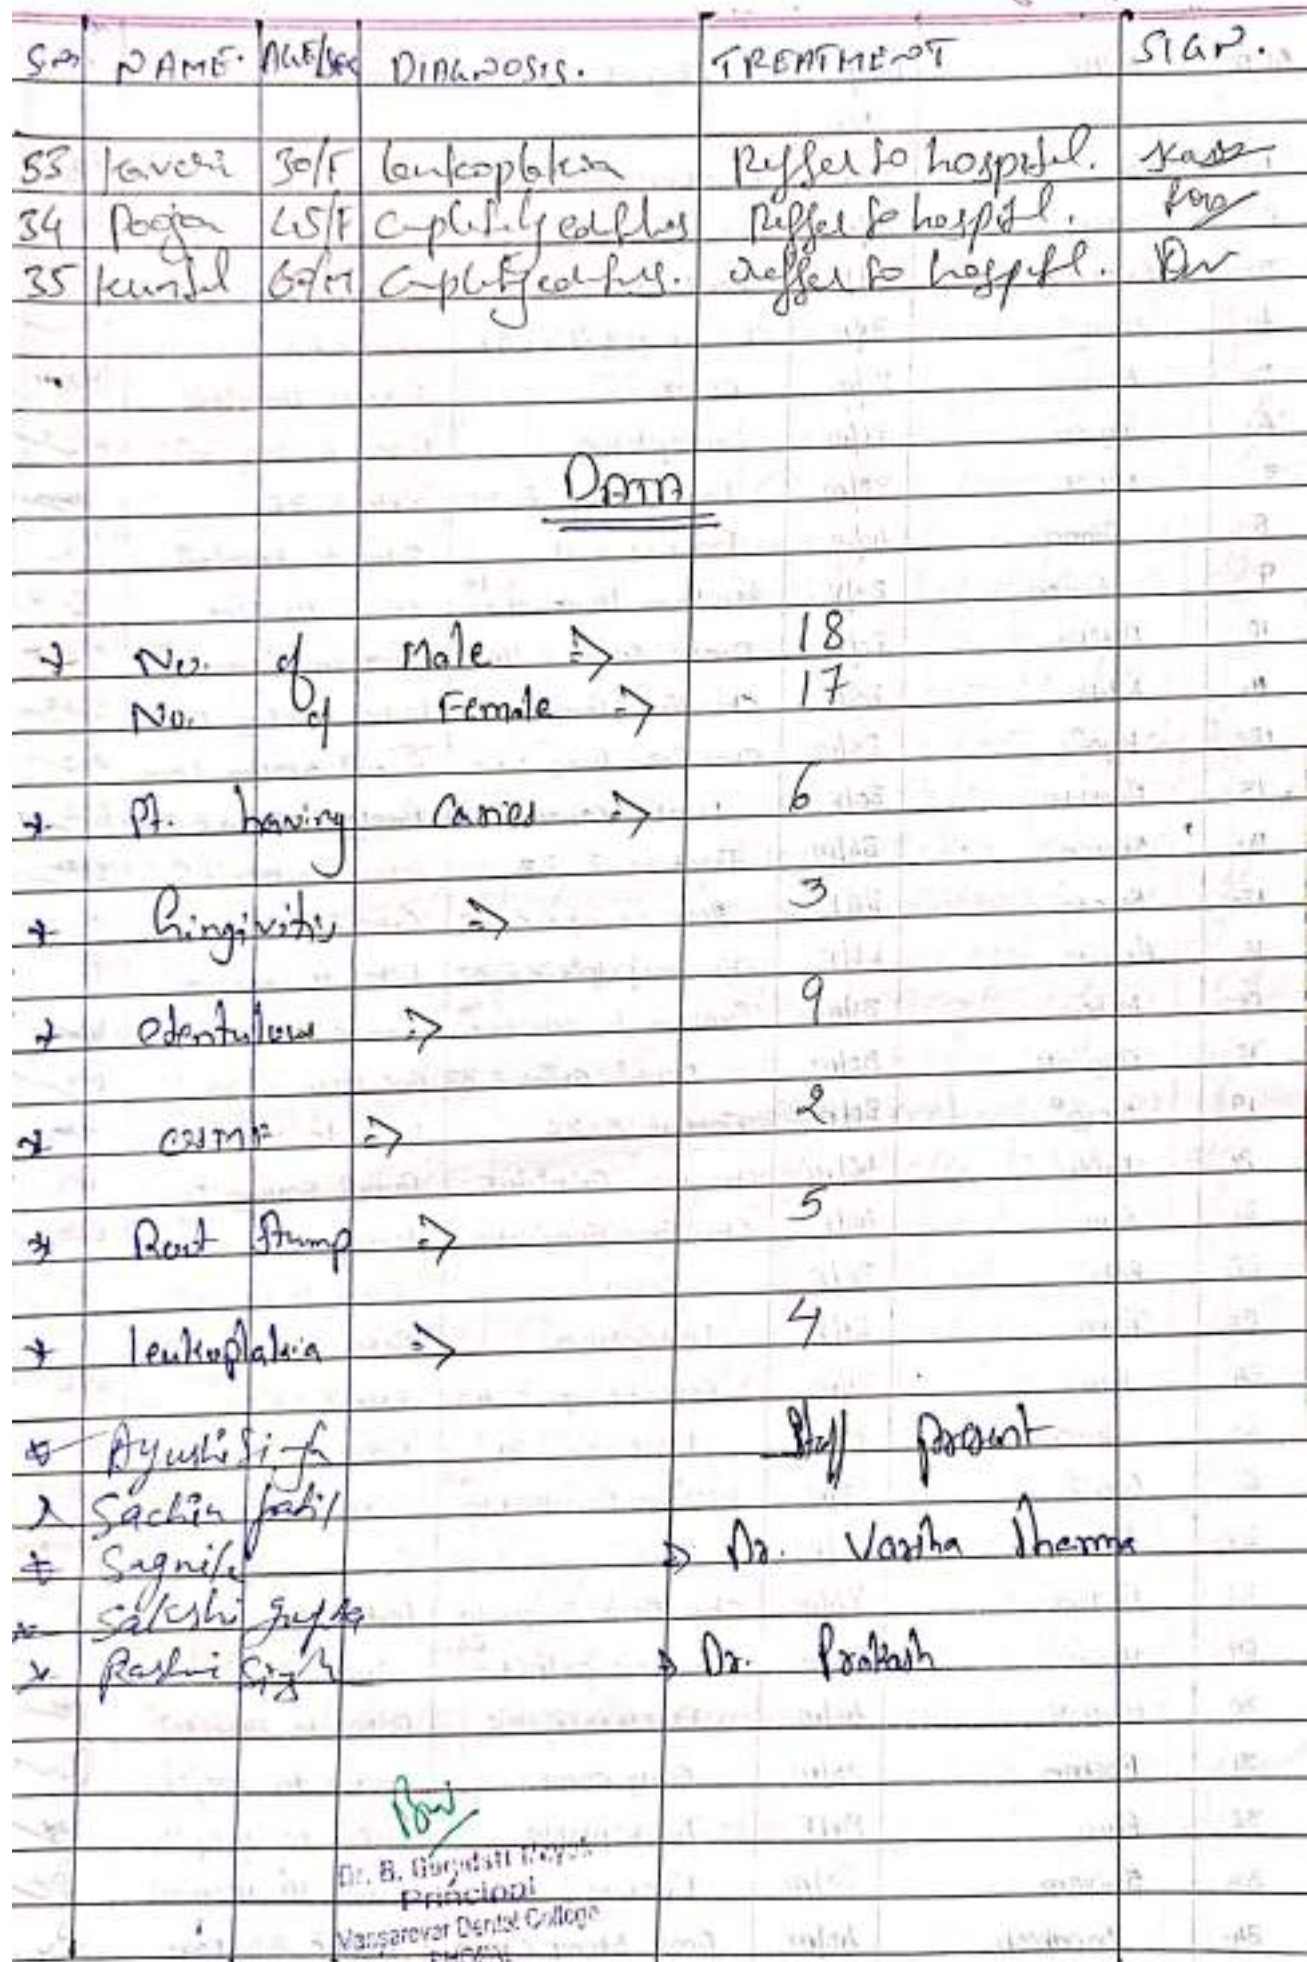 S.no NAME. AGE/SEX DIAGNOSIS. TREATMENT SIGN.
33 Kaveri 30/F leukoplakia Reffer to hospital.
34 Pooja 45/F Completely edentulous Reffer to hospital.
35 Kunjal 67/M Completely edentulous. Reffer to hospital.
DATA
No. of Male => 18
No. of Female => 17
* Pt. having Caries => 6
* Gingivitis => 3
* edentulous => 9
* OSMF => 2
* Root Stump => 5
* leukoplakia => 4
Staff present
* Ayushi
* Sachin Patil
* Sagnik
Dr. Varsha Sharma
* Sakshi Gupta
* Rashmi Singh
Dr. Prakash
Dr. B.
Principal
Mansarovar Dental College
BHOPAL